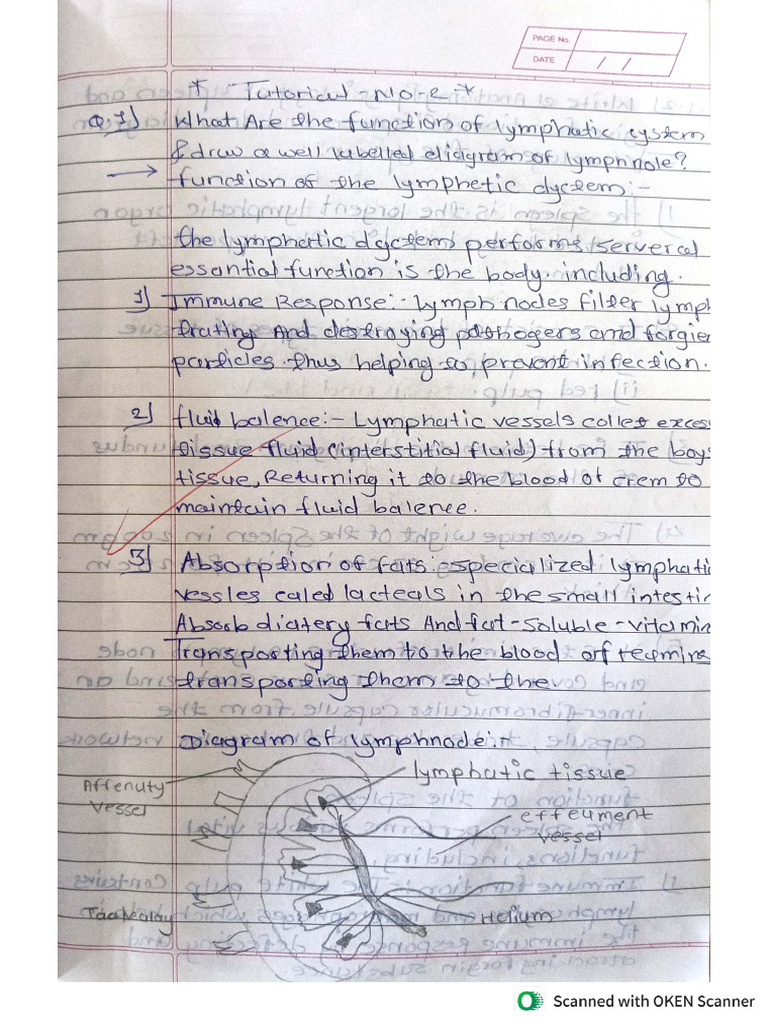 PAGE No.
DATE / /
* Tutorical - No - 2 *
Q.1) What Are the function of lymphatic cystem
& draw a well labelled diagram of lymphnole?
→ function of the lymphetic dycteem :-
the lymphatic dyctem performs serveral
essantial function is the body. including.
1) Immune Response :- lymph nodes filter lymph
trating And destroying pathogers and forgien
particles. thus helping to prevent infection.
2) fluid balence :- Lymphatic vessels collet exces
tissue fluid (interstitial fluid) from the boy
tissue, Returning it to the blood of crem to
maintain fluid balence.
3) Absorption of fats. especialized lymphati
vessles caled lacteals in the small intestin
Absorb diatery fats And fat-soluble-vitamin
Transporting them to the blood of
transporting them to the
Diagram of lymphnode :-
lymphatic tissue
Affenuty
vessel
effeument
vessel
Helium
Scanned with OKEN Scanner